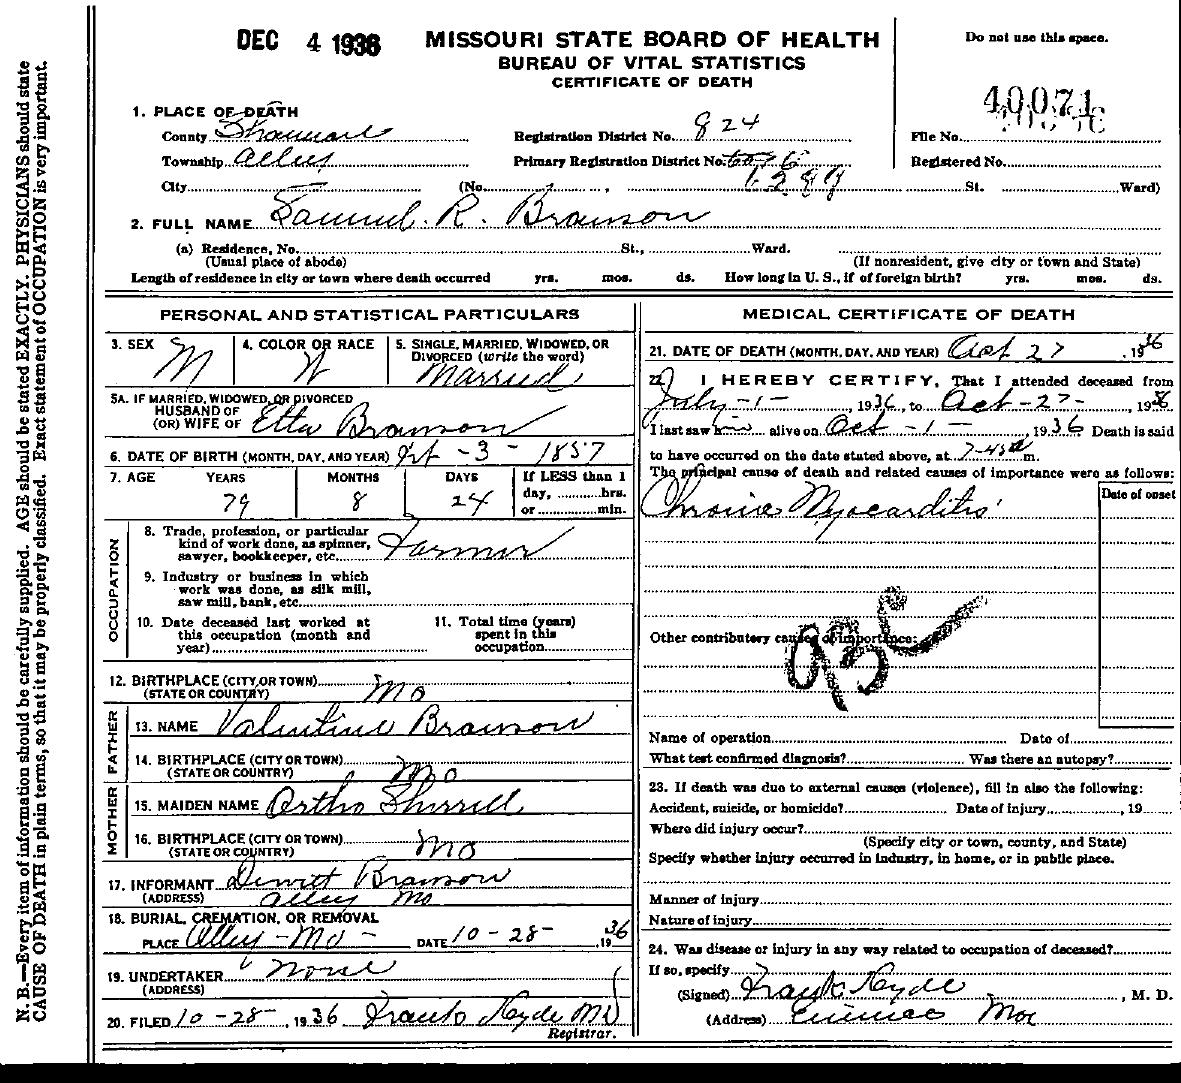 DEC 4 1936
MISSOURI STATE BOARD OF HEALTH
BUREAU OF VITAL STATISTICS
CERTIFICATE OF DEATH
Do not use this space.
40071
N. B.—Every item of information should be carefully supplied. AGE should be stated EXACTLY. PHYSICIANS should state
CAUSE OF DEATH in plain terms, so that it may be properly classified. Exact statement of OCCUPATION is very important.
1. PLACE OF DEATH
County Shannon Registration District No. 824 File No.
Township Alley Primary Registration District No. Registered No.
City (No. , St. Ward)
2. FULL NAME Samuel R. Branson
(a) Residence, No. St., Ward.
(Usual place of abode) (If nonresident, give city or town and State)
Length of residence in city or town where death occurred yrs. mos. ds. How long in U. S., if of foreign birth? yrs. mos. ds.
PERSONAL AND STATISTICAL PARTICULARS
3. SEX M 4. COLOR OR RACE W 5. SINGLE, MARRIED, WIDOWED, OR
DIVORCED (write the word)
Married
5A. IF MARRIED, WIDOWED, OR DIVORCED
HUSBAND OF
(OR) WIFE OF Etta Branson
6. DATE OF BIRTH (MONTH, DAY, AND YEAR) -3- 1857
7. AGE YEARS MONTHS DAYS If LESS than 1
79 8 24 day, hrs.
or min.
OCCUPATION
8. Trade, profession, or particular
kind of work done, as spinner,
sawyer, bookkeeper, etc. Farmer
9. Industry or business in which
work was done, as silk mill,
saw mill, bank, etc.
10. Date deceased last worked at
this occupation (month and
year)
11. Total time (years)
spent in this
occupation
12. BIRTHPLACE (CITY OR TOWN)
(STATE OR COUNTRY) Mo
FATHER
13. NAME Valentine Branson
14. BIRTHPLACE (CITY OR TOWN)
(STATE OR COUNTRY) Mo
MOTHER
15. MAIDEN NAME Ortho Sherrell
16. BIRTHPLACE (CITY OR TOWN)
(STATE OR COUNTRY) Mo
17. INFORMANT Dewitt Branson
(ADDRESS) Alley Mo
18. BURIAL, CREMATION, OR REMOVAL
PLACE Alley - Mo - DATE 10-28- 1936
19. UNDERTAKER None
(ADDRESS)
20. FILED 10-28-, 1936 Frank Hyde MD
Registrar.
MEDICAL CERTIFICATE OF DEATH
21. DATE OF DEATH (MONTH, DAY, AND YEAR) Oct 27 , 1936
22. I HEREBY CERTIFY, That I attended deceased from
July-1- , 1936, to Oct-27- , 1936
I last saw him alive on Oct -1- , 1936 Death is said
to have occurred on the date stated above, at 7-45 m.
The principal cause of death and related causes of importance were as follows:
Date of onset
Chronic Myocarditis
Other contributory causes of importance:
Name of operation Date of
What test confirmed diagnosis? Was there an autopsy?
23. If death was due to external causes (violence), fill in also the following:
Accident, suicide, or homicide? Date of injury , 19
Where did injury occur?
(Specify city or town, county, and State)
Specify whether injury occurred in industry, in home, or in public place.
Manner of injury
Nature of injury
24. Was disease or injury in any way related to occupation of deceased?
If so, specify
(Signed) Frank Hyde , M. D.
(Address) Eminence Mo